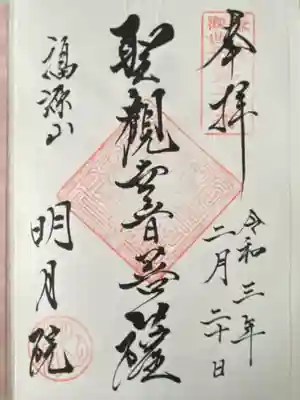 奉拝
令和三年
二月二十日
聖觀世音菩薩
福源山
明月院